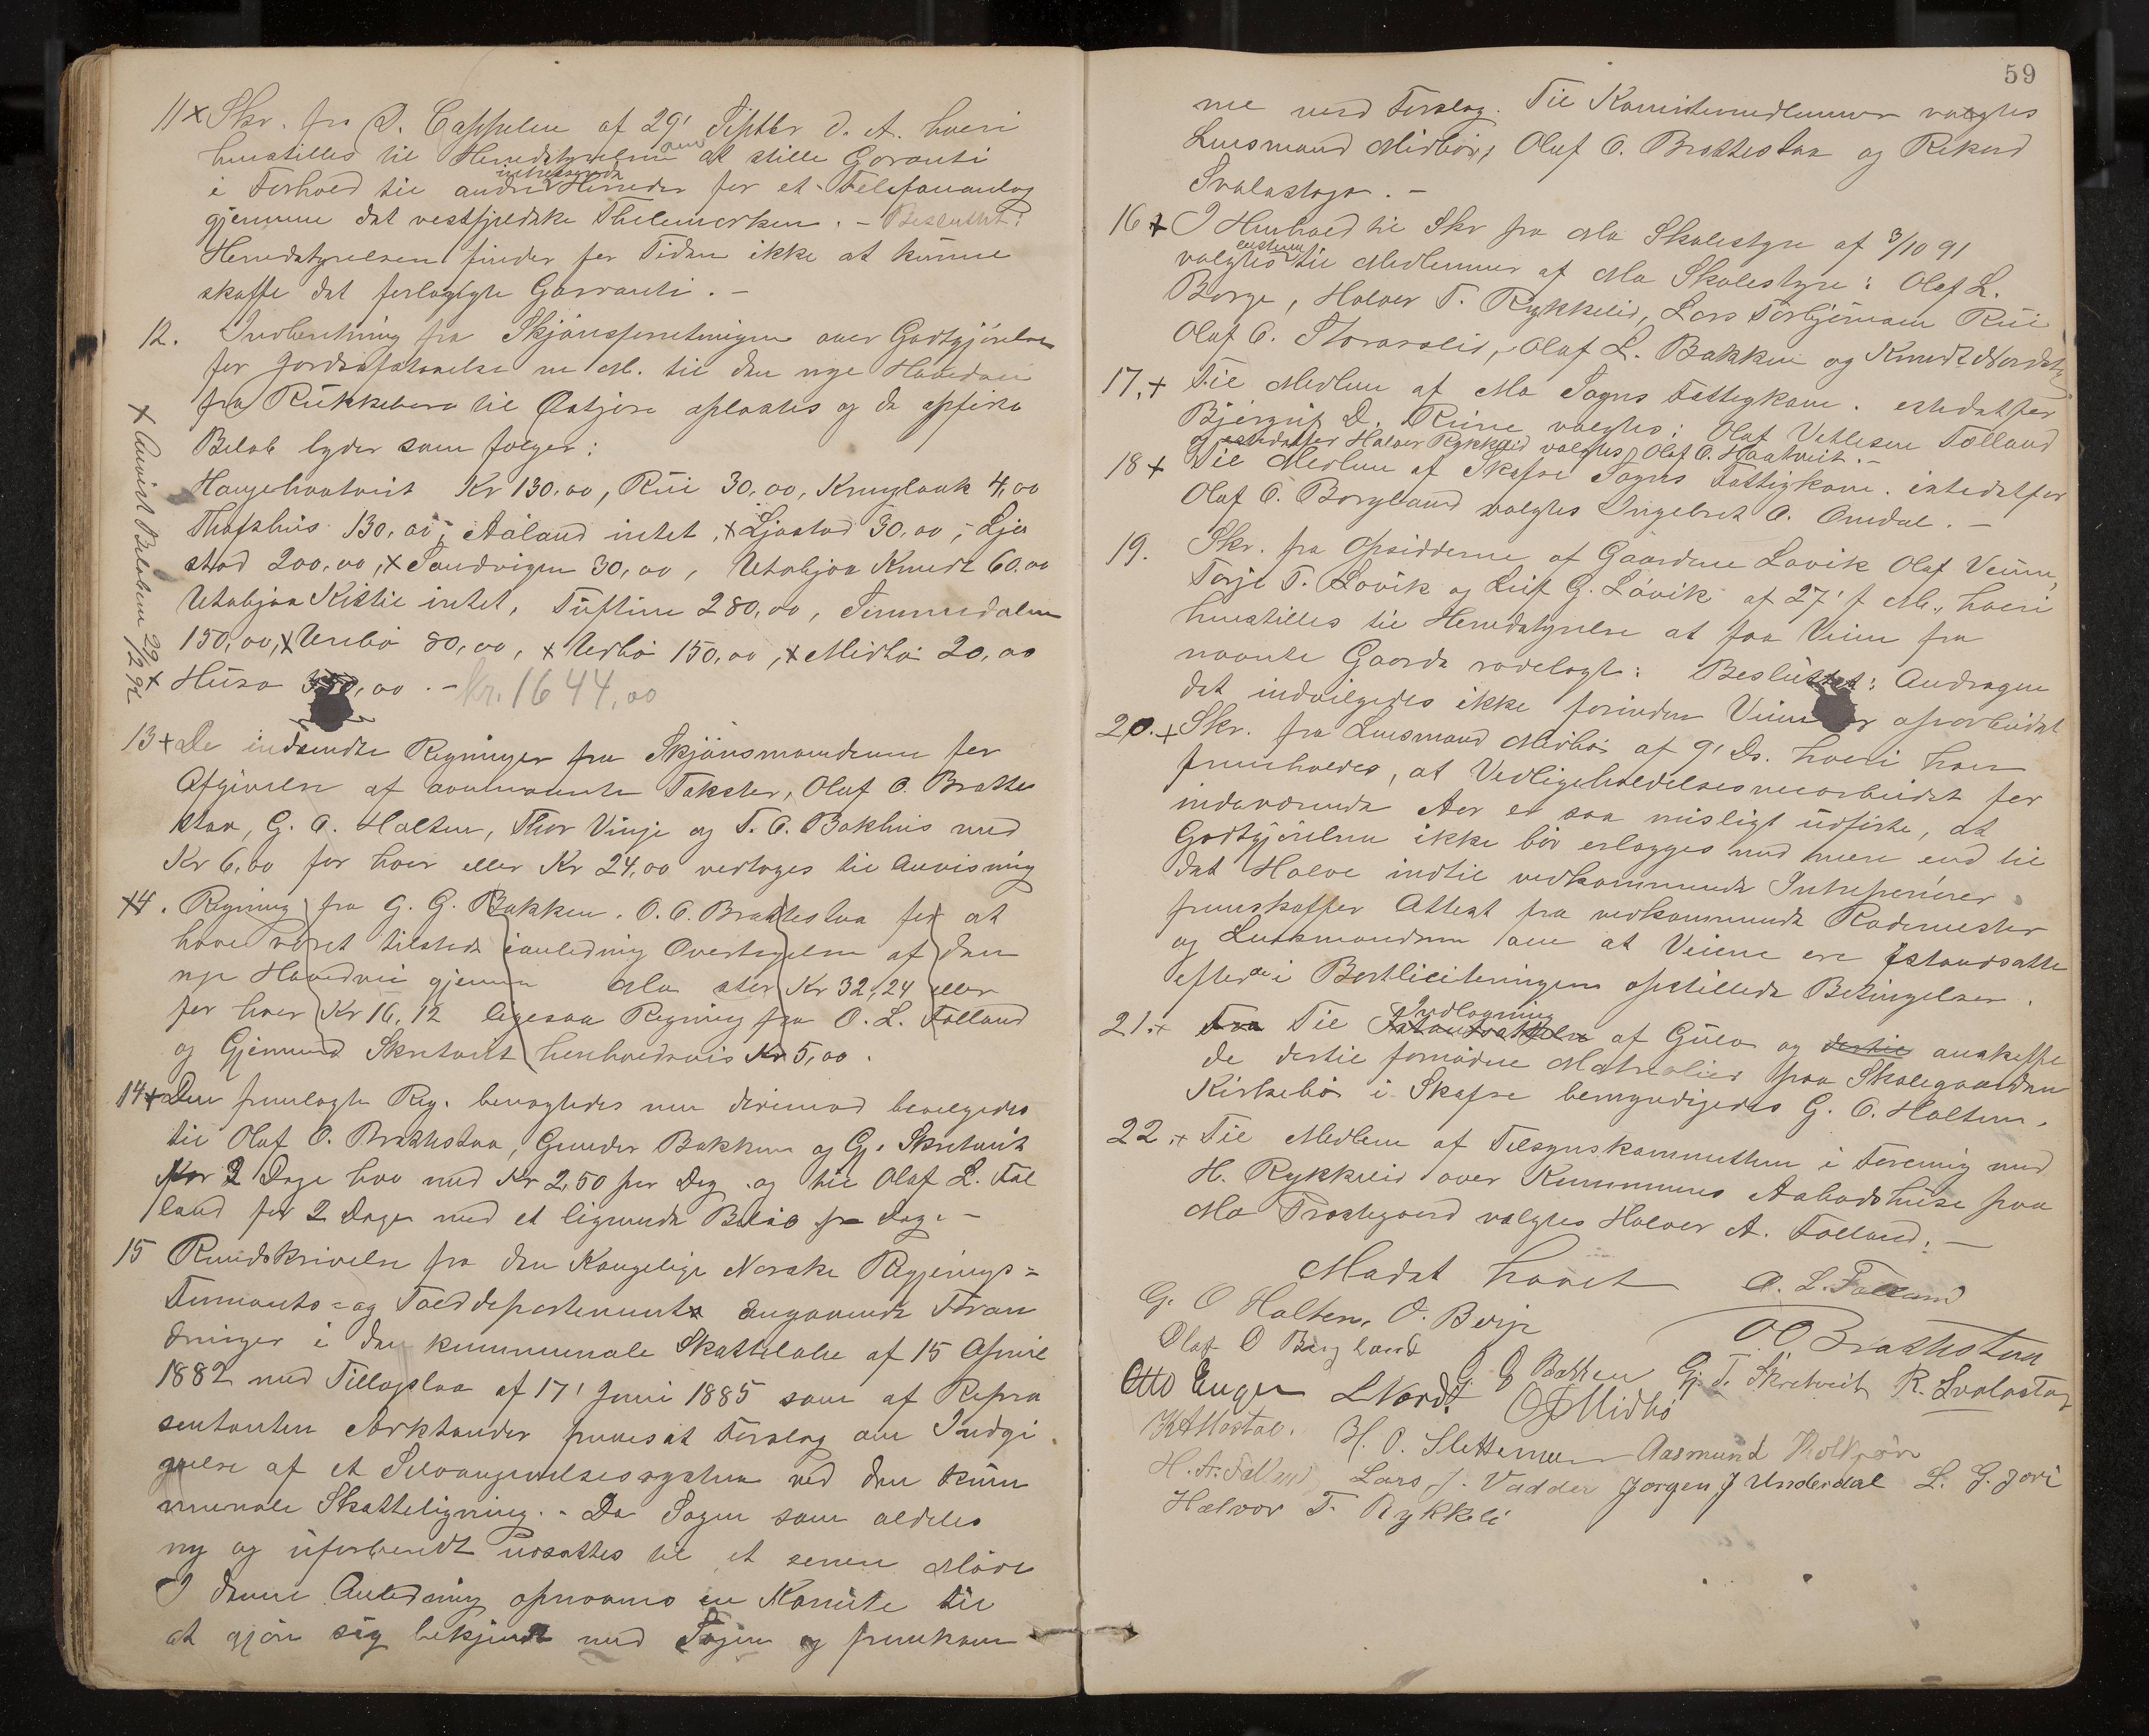 11 x Skr. fra D. Cappelen af 29' Septbr d. A. hvori
henstilles til Herredstyrelsen om at stille Garanti
i Forhold til andre interesserede Herreder for et Telefonanlæg
gjennem det vestfjeldske Thelemarken. - Besluttet:
Herredstyrelsen finder for Tiden ikke at kunne
skaffe det forlangte Garranti. -
12. Indberetning fra Skjønsforretningen over Godtgjørelse
for Jordafstaaelse m. M. til den nye Hovedvei
fra Rukkebera til Østjore oplæstes og de opførte
Beløb lyder som følger:
Haugehaatveit Kr 130,00, Rui 30,00, Kruglaak 4,00
Thofshus 130,00, Aaland intet, x Ljostad 30,00, Ljo
stad 200,00, x Sandvigen 30,00, Utabjaa Knudt 60.00
Utabjaa Kittil intet, Tuftine 280,00, Simmedalen
150,00, x Urebø 80,00, x Urbø 150,00, x Midbø 20,00
x Husa 350,00. - kr. 1644,00
x Anvist Beløbene 29/12 92
13 + De indsendte Regninger fra Skjønsmændene for
Afgivelse af ovennævnte Takster, Oluf O. Bratte
staa, G. O. Holten, Thor Vinje og T. O. Bakhus med
Kr 6,00 for hver eller Kr 24,00 vedtoges til Anvisning
14. Regning fra G. G. Bakken. O. O. Brattestaa for at
have været tilstede ianledning Overtagelsen af den
nye Hovedvei gjennem Mo stor Kr 32,24 eller
for hver Kr 16,12 ligesaa Regning fra O. L. Folland
og Gjermund Skretveit henholdsvis Kr 5,00.
14 + Den fremlagte Reg. benægtedes men derimod bevilgedes
til Olaf O. Brattestaa, Gunder Bakken og Gj. Skretveit
for 2 Dage hver med Kr 2,50 per Dag og til Olaf L. Fol
land for 2 Dage med et lignende Beløb pr Dag. -
15 Rundskrivelse fra den Kongelige Norske Regjerings=
Finants= og Tolddepartement angaaende Foran
dringer i den kommunale Skattelov af 15 April
1882 med Tillægslov af 17' Juni 1885 som af Repræ
sentanten Arktander fremsat Forslag om Indgi
velse af et Selvangivelsessystem ved den kom
munale Skatteligning. - Da Sagen som aldeles
ny og uforberedt udsattes til et senere Møde
I denne Anledning opnævnes en Komite til
at gjøre sig bekjendt med Sagen og fremkom
59
me med Forslag. Til Komitemedlemmer valgtes
Lensmand Midbø, Oluf O. Brattestaa og Rikard
Svalastoga. -
16 + I Henhold til Skr fra Mo Skolestyre af 3/10 91
valgtes til Medlemmer af Mo Skolestyre: Olaf L.
Borge, Halvor T. Rykkelid, Lars Torbjørnsen Rui
Olaf O. Storaaslid, Olaf L. Bakken og Knudt Nordst
17. + Til Medlem af Mo Sogns Fattigkom. istedetfor
Bjørgulf D. Ruine valgtes: Olaf Vetlesen Folland
istedetfor Halvor Rykkelid valgtes Olaf O. Haatveit. -
18 + Til Medlem af Skafse Sogns Fattigkom. istedetfor
Olaf O. Borgland valgtes Ingebret O. Omdal. -
19. Skr. fra Opsidderne af Gaardene Lavik Olaf Veum,
Torje T. Lovik og Leif G. Lavik af 27' f. M., hvori
henstilles til Herredstyrelse at faa Veien fra
nævnte Gaarde rodelagt: Besluttet: Andragen
det indvilgedes ikke forinden Veien er oparbeidet
20. + Skr. fra Lensmand Midbø af 9' Ds. hvori han
fremholdes, at Vedligeholdelsesvearbeidet for
indeværende Aar er saa misligt udførte, at
Godtgjørelsen ikke bør erlægges med mere end til
det Halve indtil vedkommende Intreprenører
fremskaffer Attest fra vedkommende Rodemester
og Lensmanden om at Veiene ere istandsatte
efter de i Bortliciteringen opstillede Betingelser.
21. + Til Indlægning af Gulv og anskaffe
de dertil fornødne Materialier paa Skolegaarden
Kirkebø i Skafse bemyndigedes G. O. Holten.
22. + Til Medlem af Tilsynskommitteen i Forening med
H. Rykkelid over Kommunens Aabodshuse paa
Mo Prestegaard valgtes Halvor A. Folland. -
Mødet hævet
A. L. Folland
G. O Holten, O. Berge
O O Brattestaa
Olaf O Borgland
G G Bakken Gj. T. Skretveit R. Svalastog
Otto Enger LNordt OJMidbø
KAMostøl. H. O. Slettemeen AasmundHoltjøre
H. A. Folland Lars J. Vadder Jørgen J Underdal L. G. Jore
Halvor T. Rykkeli